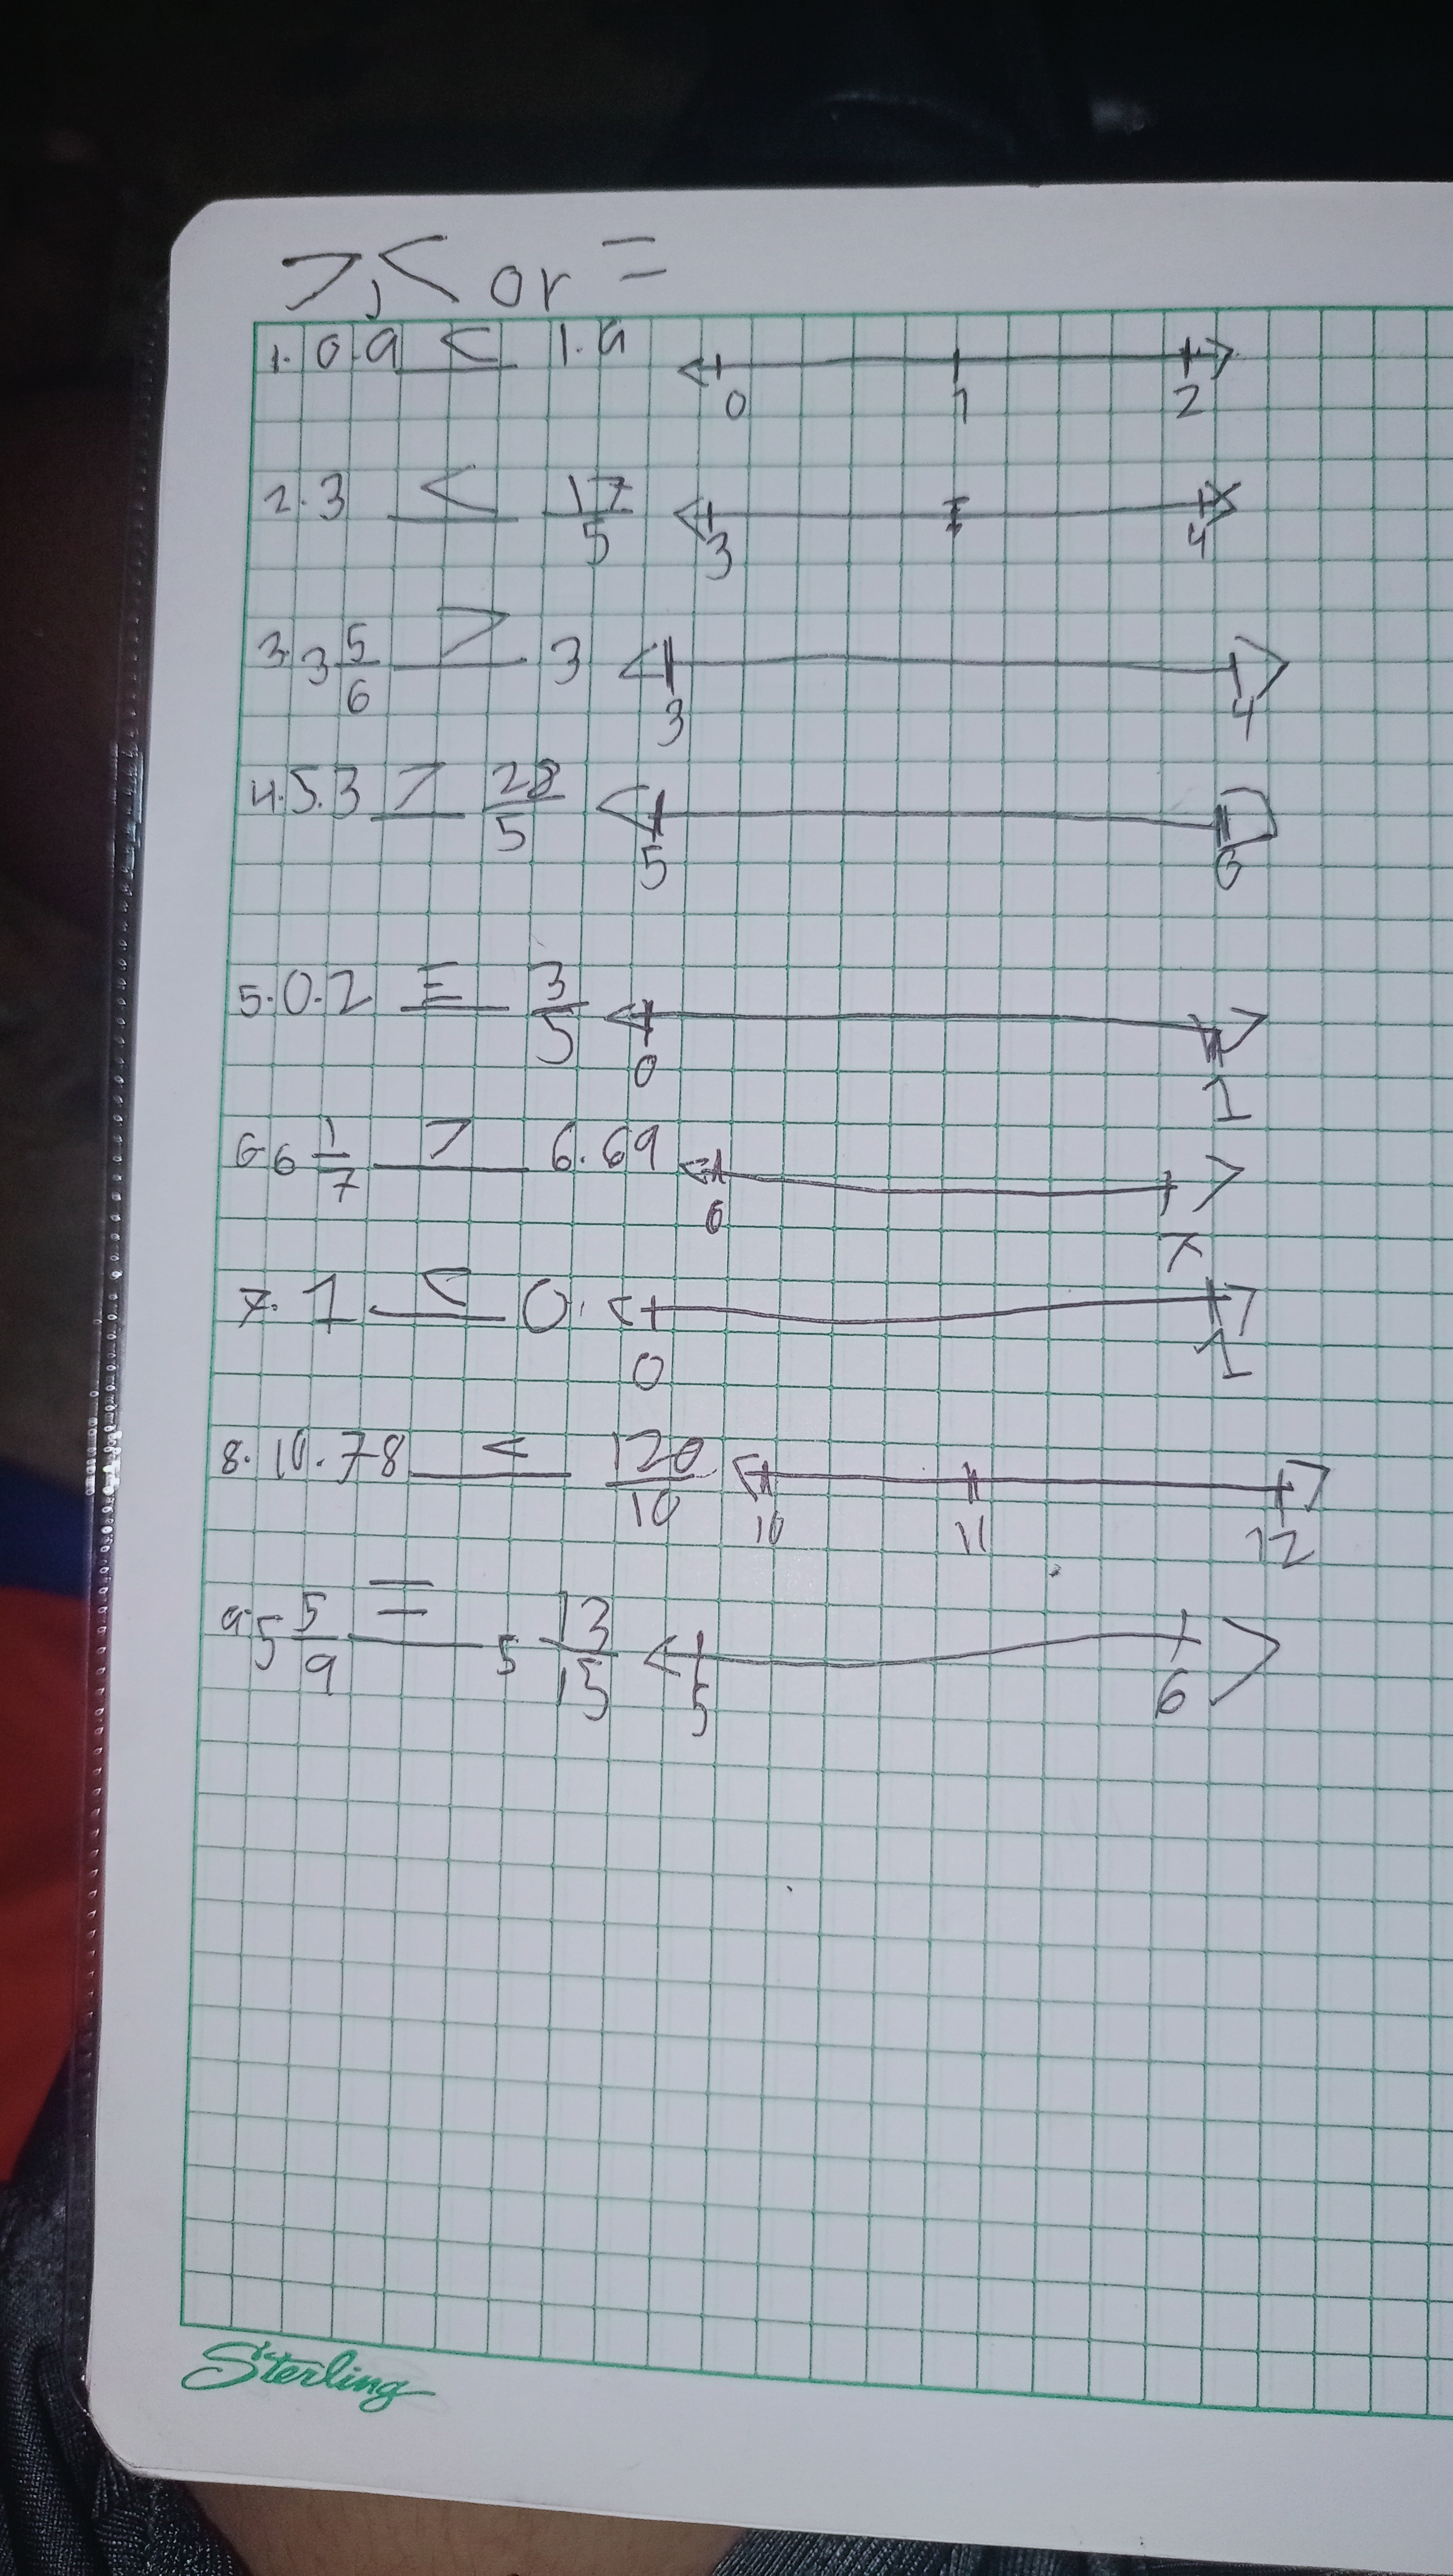 >, < or =
1. 0.9 < 1.9 0 1 2
2. 3 < 17/5 3 4
3. 3 5/6 > 3 3 4
4. 5.3 > 28/5 5 6
5. 0.2 = 3/5 0 1
6. 6 1/7 > 6.69 6 7
7. 1 < 0 0 1
8. 10.78 < 120/10 10 11 12
9. 5 5/9 = 5 13/15 5 6
Sterling